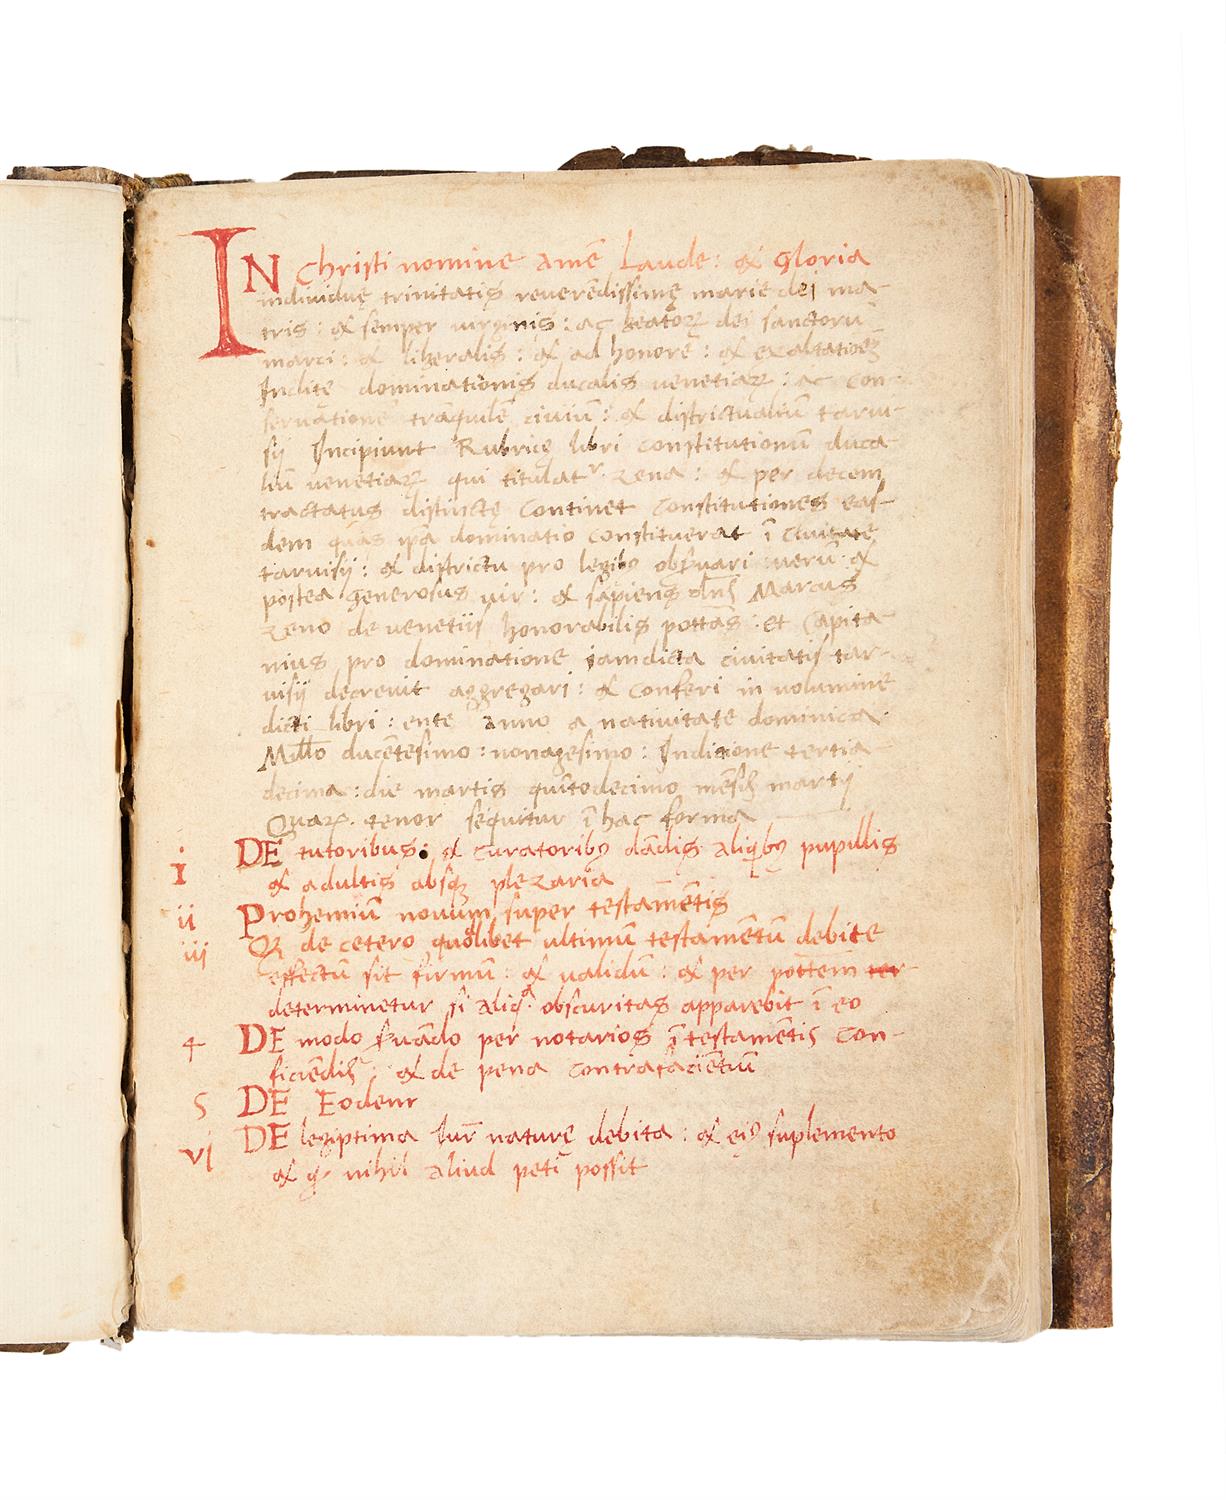 IN Christi nomine Amē Laude: & Gloria
individuę trinitatis reverēdissimę marię dei ma-
tris: & semper virginis: ac beatorꝝ dei sanctoru
marci: & liberalis: & ad honorē: & exaltationē
Inclitę dominationis ducalis venetiarꝝ: ac con-
servatione trāquilē civiū: & districtualiū tarvi-
sij Incipiunt Rubricę libri constitutionū duca
liū venetiarꝝ qui titulatʳ zena: & per decem
tractatus distinctę continet constitutiones eas-
dem quas ip̄a dominatio constituerat ī civitate
tarvisij: & districtu pro legibꝰ obs̄vari verū &
postea generosus vir: & sapiens dn̄s Marcus
zeno de venetiis honorabilis pottās: et Capita-
nius pro dominatione iamdicta civitatis tar-
visij decrevit aggregari: & conferi in volumine
dicti libri: ente Anno a nativitate dominica
Mill̄o ducētesimo: nonagesimo: Indictione tertia
decima: die martis quītodecimo mēs̄ martij
Quarꝝ. tenor sequitur ī hac forma
i DE tutoribus: & curatoribꝰ dādis aliqibꝰ pupillis
& adultis absqꝫ plezaria
ii Prohemiū novum super testamētis
iii Qꝫ de cetero quodlibet ultimū testamētū debite
effectū sit firmū: & validū: & per pottem ter-
determinetur si aliqᵃ obscuritas apparebit ī eo
4 DE modo s̄vādo per notarios ī testamētis con-
ficiēdis: & de pena contrafaciētiū
5 DE Eodem
vi DE legiptima Iur̄ naturę debita: & eiꝰ suplemento
& qꝫ nihil aliud peti possit